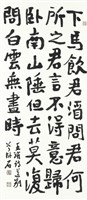 下馬飲君酒問君何
所之君言不得意歸
卧南山陲但去莫復
問白雲無盡時
王維詩送別